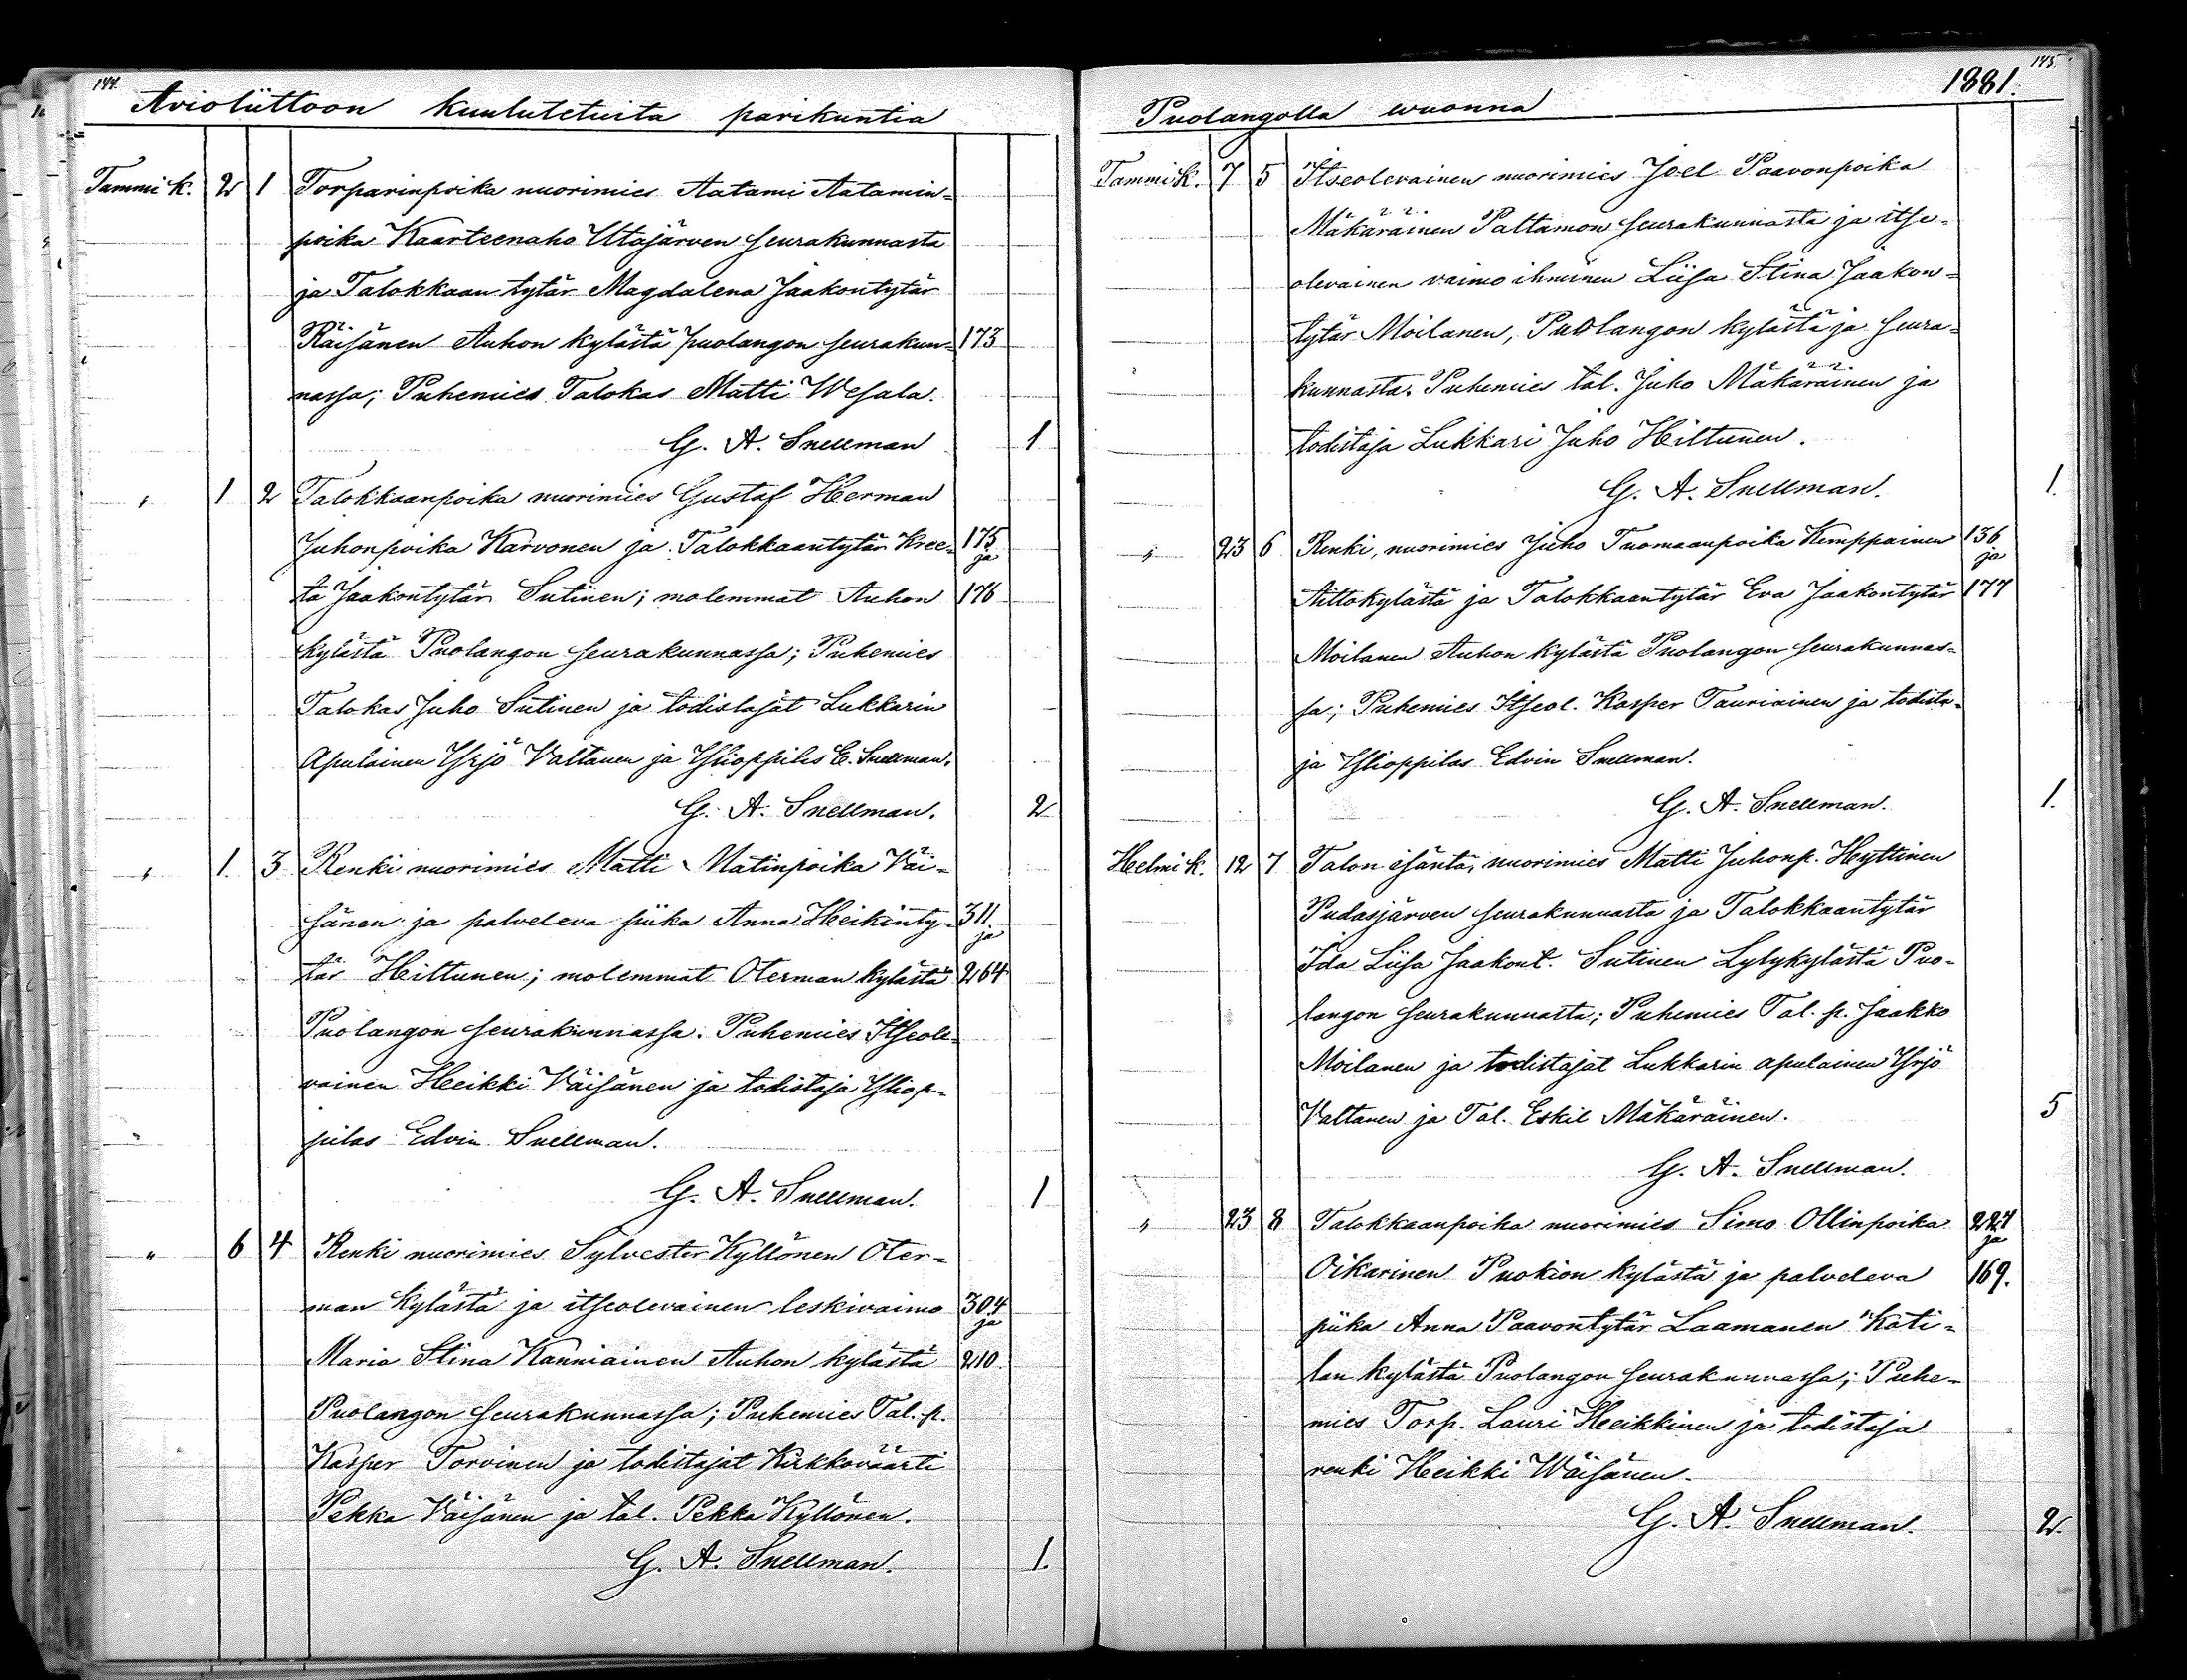 144.
Avioliittoon kuulutetuita parikuntia
Tammik. 2 1 Torparinpoika nuorimies Aatami Aatamin-
poika Kaarteenaho Utajärven seurakunnasta
ja Talokkaan tytär Magdalena Jaakontytär
Räisänen Auhon kylästä Puolangon seurakun- 173
nassa; Puhemies Talokas Matti Wesala.
G. A. Snellman 1
" 1 2 Talokkaanpoika nuorimies Gustaf Herman
Juhonpoika Karvonen ja Talokkaantytär Kree- 175 ja
ta Jaakontytär Sutinen; molemmat Auhon 176
kylästä Puolangon seurakunnassa; Puhemies
Talokas Juho Sutinen ja todistajat Lukkarin
Apulainen Yrjö Valtanen ja Ylioppilas E. Snellman.
G. A. Snellman. 2
" 1. 3 Renki nuorimies Matti Matinpoika Väi-
sänen ja palveleva piika Anna Heikinty- 311. ja
tär Heittunen; molemmat Oterman kylästä 264
Puolangon seurakunnassa. Puhemies Itseole-
vainen Heikki Väisänen ja todistaja Yliop-
pilas Edvin Snellman.
G. A. Snellman. 1
" 6 4 Renki nuorimies Sylvester Kyllönen Oter-
man kylästä ja itseolevainen leskivaimo 304 ja
Maria Stina Kanniainen Auhon kylästä 210.
Puolangon seurakunnassa; Puhemies Tal. p.
Kasper Torvinen ja todistajat Kirkkoväärti
Pekka Väisänen ja tal. Pekka Kyllönen.
G. A. Snellman. 1.
145.
Puolangolla wuonna 1881.
Tammik. 7 5 Itseolevainen nuorimies Joel Paavonpoika
Mäkäräinen Paltamon seurakunnasta ja itse-
olevainen vaimo ihminen Liisa Stina Jaakon-
tytär Moilanen, Puolangon kylästä ja seura-
kunnasta. Puhemies tal. Juho Mäkäräinen ja
todistaja Lukkari Juho Hiltunen.
G. A. Snellman. 1.
" 23 6 Renki, nuorimies Juho Tuomaanpoika Kemppainen 136 ja
Aittokylästä ja Talokkaantytär Eva Jaakontytär 177
Moilanen Auhon kylästä Puolangon seurakunnas-
sa; Puhemies Itseol. Kasper Tauriainen ja todista-
ja Ylioppilas Edvin Snellman.
G. A. Snellman. 1.
Helmik. 12 7 Talon isäntä, nuorimies Matti Juhonp. Hyttinen
Pudasjärven seurakunnasta ja Talokkaantytär
Ida Liisa Jaakont. Sutinen Lylykylästä Puo-
langon seurakunnasta; Puhemies Tal. p. Jaakko
Moilanen ja todistajat Lukkarin apulainen Yrjö
Valtanen ja Tal. Eskil Mäkäräinen. 5
G. A. Snellman.
" 23 8 Talokkaanpoika nuorimies Simo Ollinpoika 227 ja
Oikarinen Puokion kylästä ja palveleva 169.
piika Anna Paavontytär Laamanen Koti-
lan kylästä Puolangon seurakunnassa; Puhe-
mies Torp. Lauri Heikkinen ja todistaja
renki Heikki Wäisänen.
G. A. Snellman. 2.